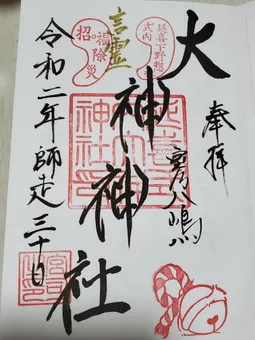 奉拝
室八嶋
大神神社
延喜式内
下野惣社
言霊
招福除災
令和二年師走三十日